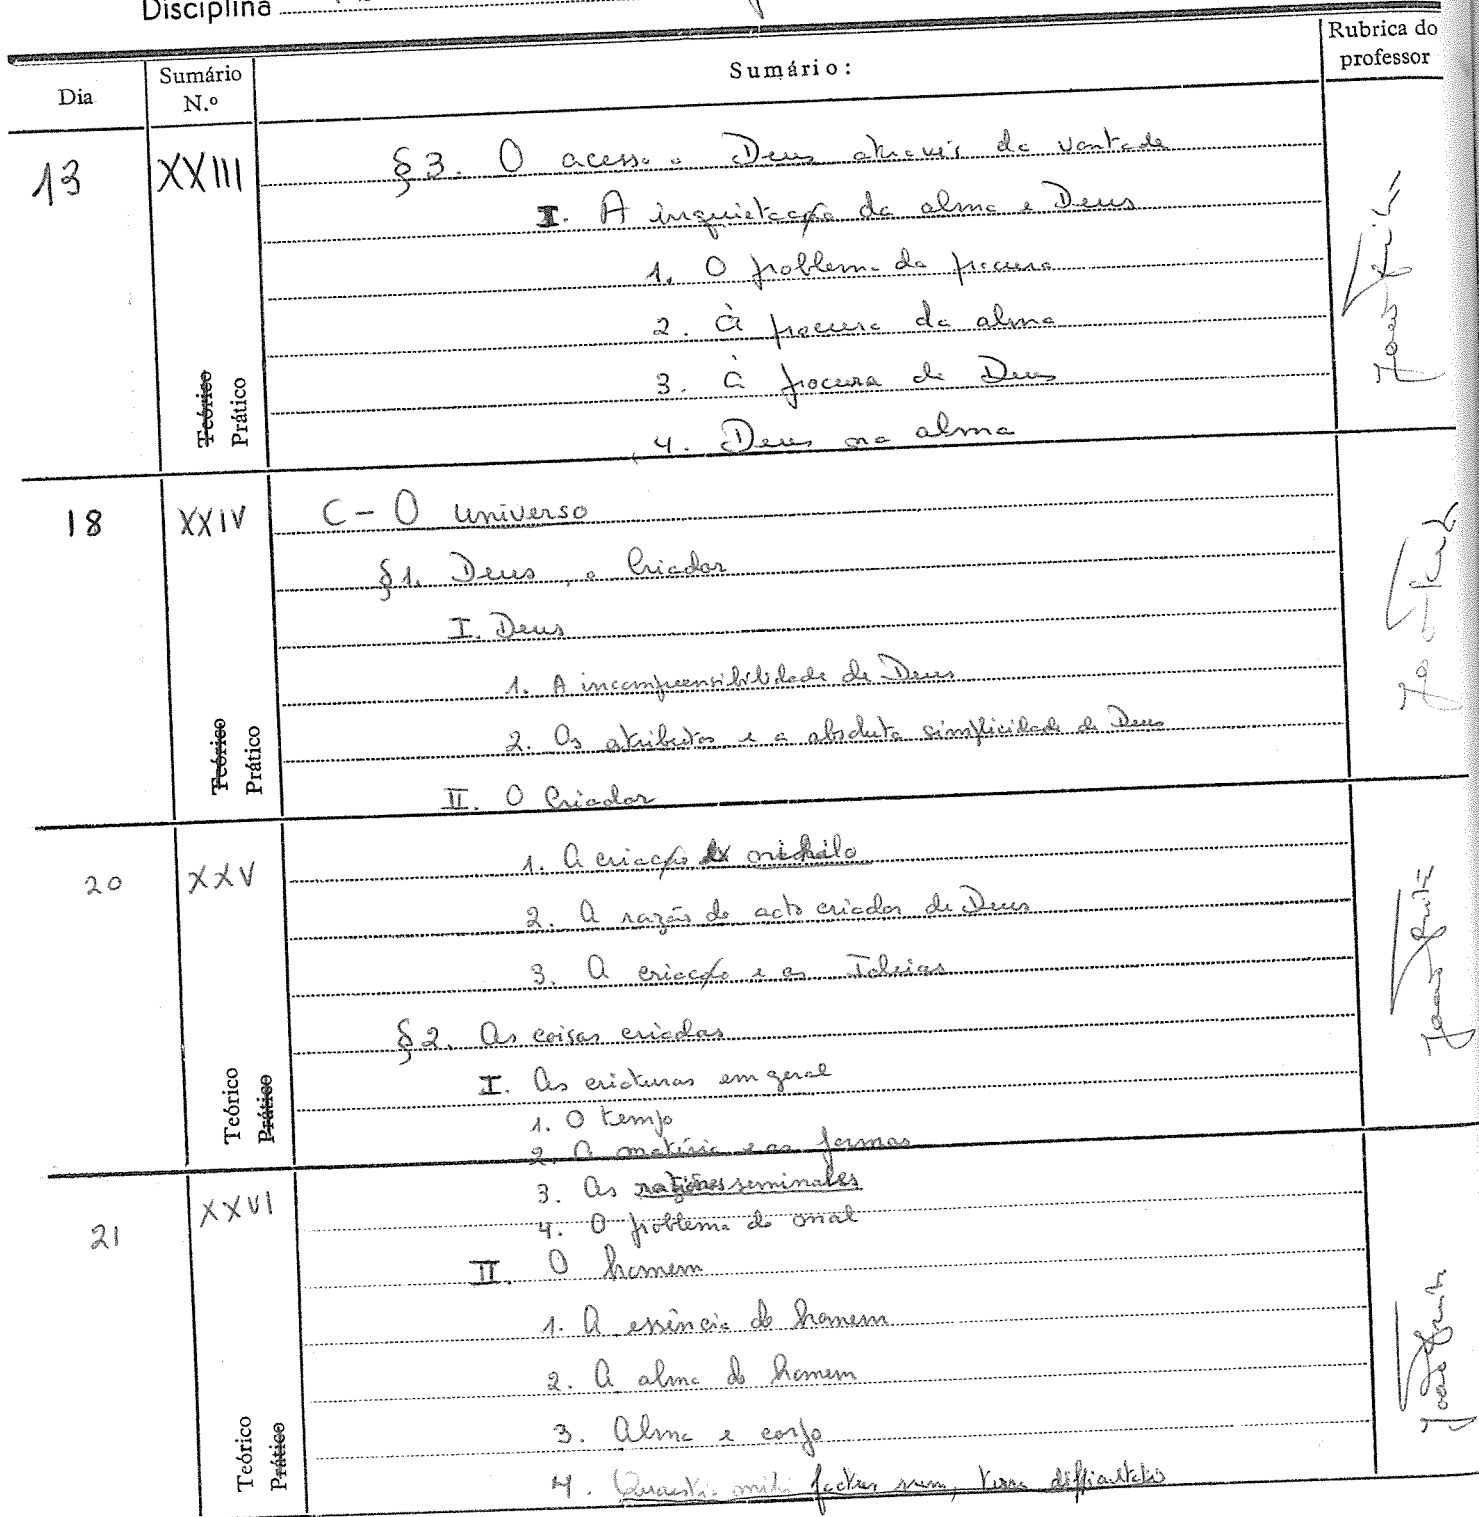 Disciplina
Dia
Sumário N.º
Sumário:
Rubrica do professor
13
XXIII
Teórico
Prático
§ 3. O acesso a Deus através da vontade
I. A inquietação da alma e Deus
1. O problema da procura
2. À procura da alma
3. À procura de Deus
4. Deus na alma
18
XXIV
Teórico
Prático
C – O universo
§ 1. Deus, o Criador
I. Deus
1. A incompreensibilidade de Deus
2. Os atributos e a absoluta simplicidade de Deus
II. O Criador
20
XXV
Teórico
Prático
1. A criação ex nichilo
2. A razão do acto criador de Deus
3. A criação e as Ideias
§ 2. As coisas criadas
I. As criaturas em geral
1. O tempo
2. A matéria e as formas
21
XXVI
Teórico
Prático
3. As rationes seminales
4. O problema do mal
II. O homem
1. A essência do homem
2. A alma do homem
3. Alma e corpo
4. Quaestio mihi factus sum, terra difficultatis